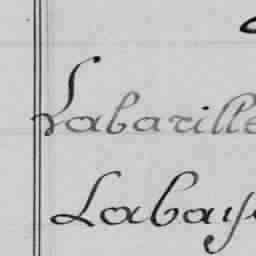 Labarille
Labay